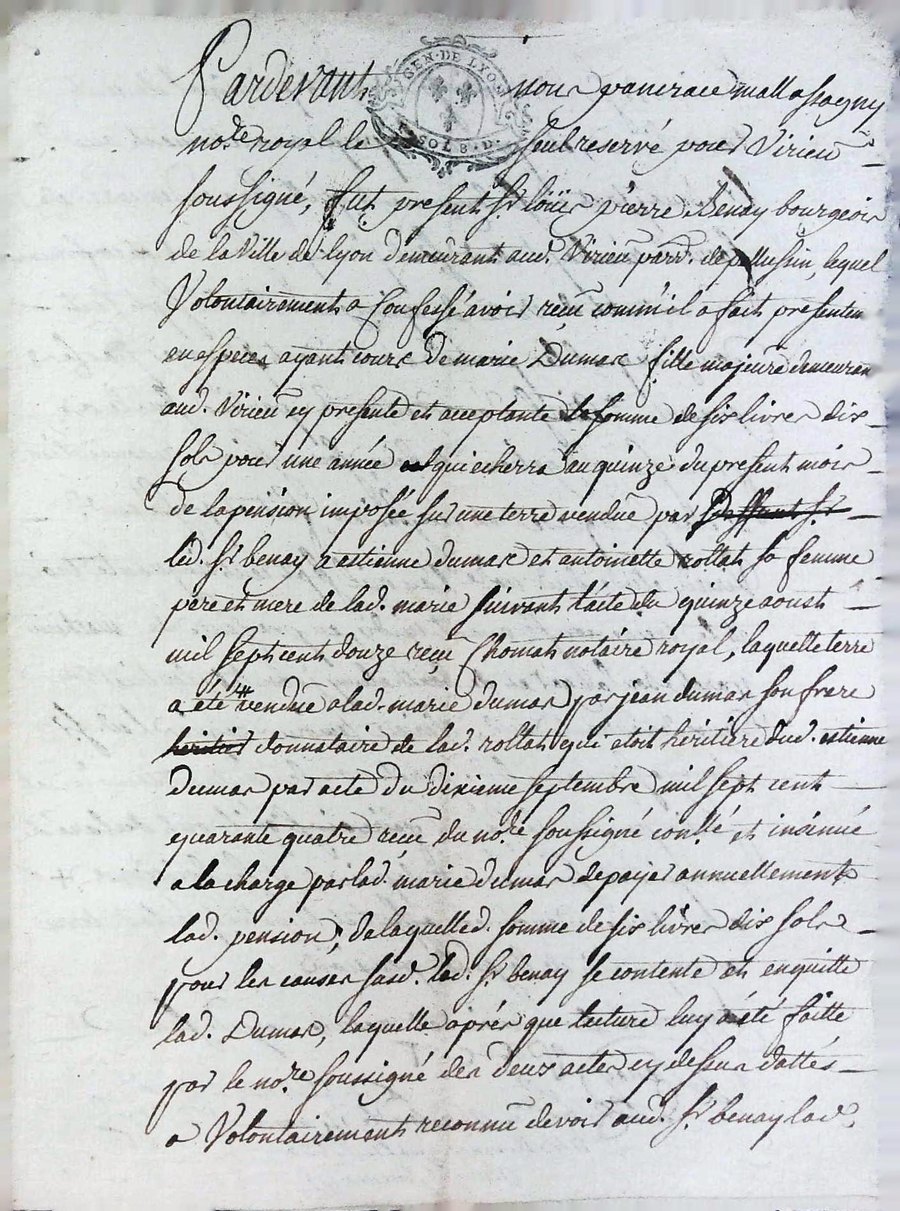 Pardevant nous pancrace mallassagny
GEN · DE LYON
SOLS · D ·
no.re royal le seul reservé pour Virieu
soussigné, fut present Sr. loüis pierre Benay bourgeois
de la Ville de lyon demeurant aud. Virieu parr. de pellussin, lequel
Volontairement a Confessé avoir reçu comm'il a fait presentem
en especes ayant cours de marie Dumas fille majeure demeuran
aud. Virieu cy presente et acceptante la somme de six livres dix
sols pour une année qui echerra au quinze du present mois
de la pension imposée sur une terre vendue par deffunt Sr.
led. Sr. benay a estienne dumas et antoinette rollat sa femme
pere et mere de lad. marie suivant l'acte du quinze aoust
mil sept cent douze reçu Chomat notaire royal, laquelle terre
a été vendue a lad. marie dumas par jean dumas son frere
heritier donnataire de lad. rollat qui etoit heritiere dud. estienne
dumas par acte du dixieme septembre mil sept cent
quarante quatre reçu du no.re soussigné conllé et insinué
a la charge par lad. marie dumas de payer annuellement
lad. pension, de laquelle d. somme de six livres dix sols
pour les causes susd. led. Sr. benay se contente et en quitte
lad. Dumas, laquelle aprés que lecture luy a été faitte
par le no.re soussigné des deux actes cy dessus dattés
a Volontairement reconnu devoir aud. Sr. benay lad.